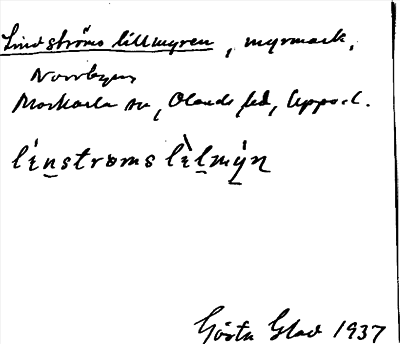 Lindströms lillmyren, myrmark,
Norrbyn
Morkarla sn, Olands hd, Upps. l.
línstroms lìlmýn
Gösta Glad 1937